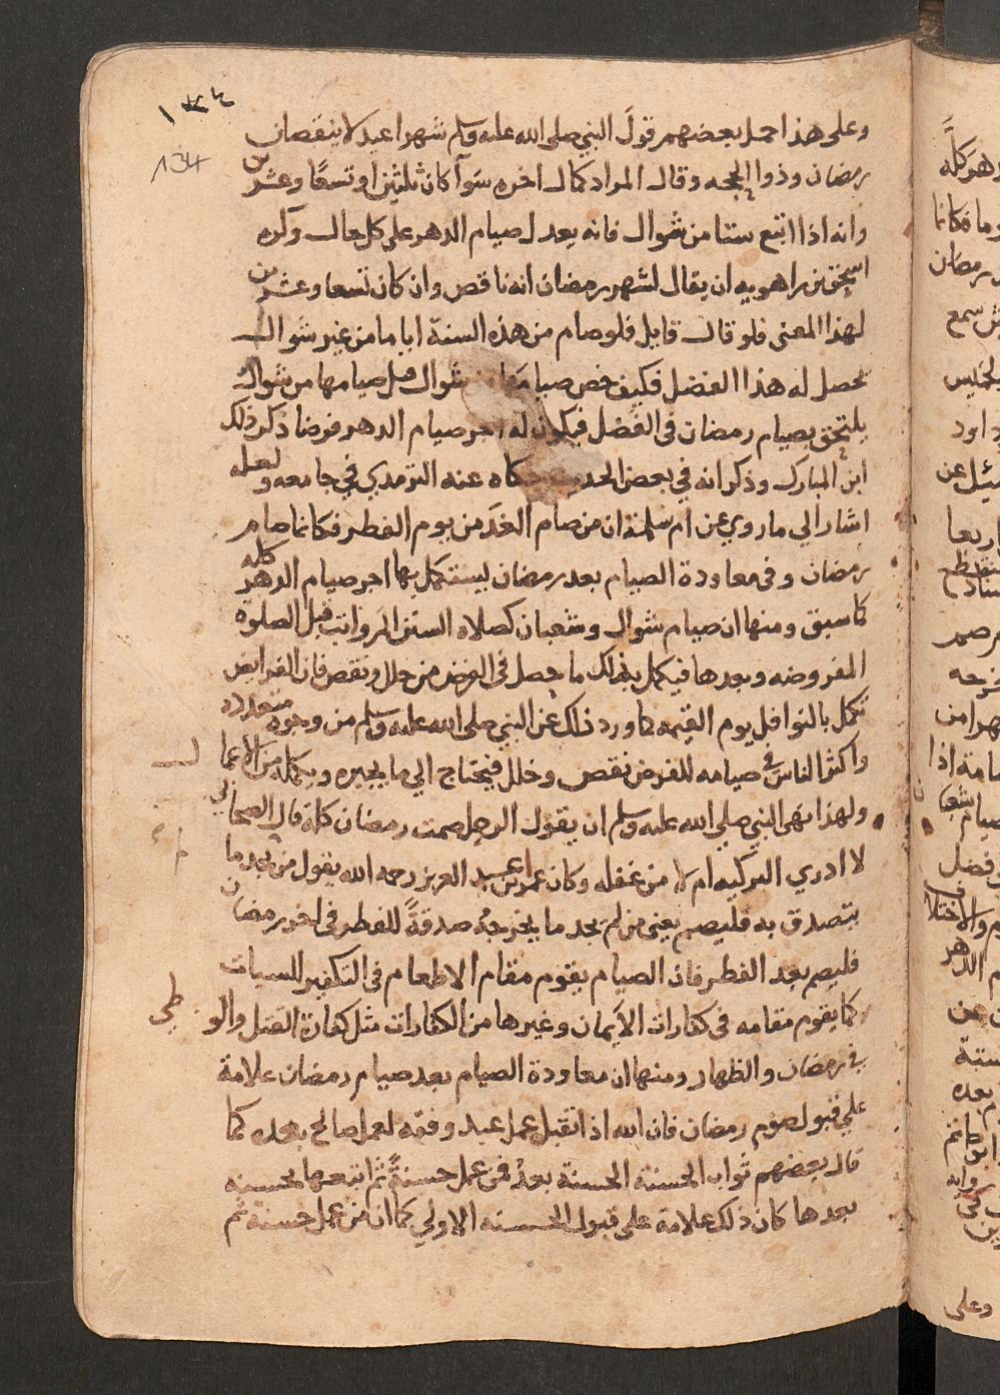 ١٣٤
134
وعلى هذا حمل بعضهم قول النبي صلى الله عليه وسلم شهرا عيد لا ينقصان
رمضان وذوا الحجه وقال المراد كمال اخره سوآ كان ثلثين او تسعًا وعشرين
وانه اذا اتبع ستا من شوال فانه يعدل صيام الدهر على كل حال وكره
اسحق بن راهويه ان يقال لشهر رمضان انه ناقص وان كان تسعا وعشرين
لهذا المعنى فلو قال قايل فلو صام من هذه السنة اياما من غير شوال
يحصل له هذا الفضل فكيف خص صيامها من شوال قيل صيامها من شوال
يلتحق بصيام رمضان في الفضل فيكون له اجر صيام الدهر فرضا ذكر ذلك
ابن المبارك وذكر انه في بعض الحديث حكاه عنه الترمدي في جامعه ولعله
اشار الي ما روي عن ام سلمة ان من صام الغد من يوم الفطر فكانما صام
رمضان وفي معاودة الصيام بعد رمضان ليستكمل بها اجر صيام الدهر كله
كما سبق ومنها ان صيام شوال وشعبان كصلاه السنن الرواتب قبل الصلوة
المفروضه وبعدها فيكمل بذلك ما حصل في الفرض من خلل ونقص فان الفرايض
تكمل بالنوافل يوم القيمه كما ورد ذلك عن النبي صلى الله عليه وسلم من وجوه متعدده
واكثر الناس في صيامه للفرض نقص وخلل فيحتاج الي ما يجبره ويكمله من الاعمال
ولهذا نهى النبي صلي الله عليه وسلم ان يقول الرجل صمت رمضان كلة قال الصحابي
لا ادري اكره التزكيه ام لا من غفله وكان عمر بن عبد العزيز رحمه الله يقول من لم يجد ما
يتصدق به فليصم يعني من لم يجد ما يخرجه صدقةً للفطر في اخر رمضان
فليصم بعد الفطر فان الصيام يقوم مقام الاطعام في التكفير للسيات
كما يقوم مقامه في كفارات الأيمان وغيرها من الكفارات مثل كفارة القتل والوطي
في رمضان والظهار ومنها ان معاودة الصيام بعد صيام رمضان علامة
علي قبول صوم رمضان فان الله اذا تقبل عمل عبد وفقه لعمل صالح بعده كما
قال بعضهم ثواب الحسنة الحسنة بعد فمن عمل حسنةً ثم اتبعها بحسنه
بعدها كان ذلك علامة على قبول الحسنه الاولي كما ان من عمل حسنة ثم